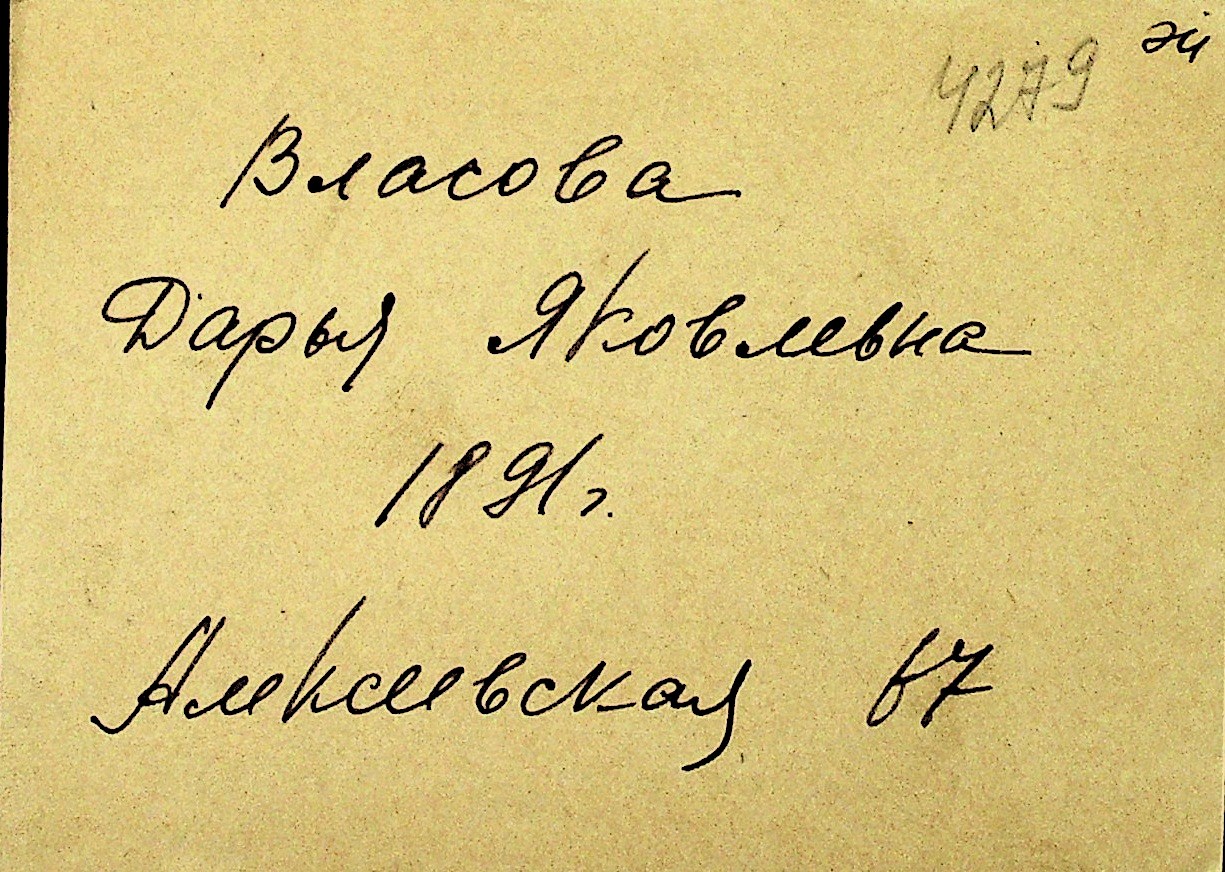 4279
Власова
Дарья Яковлевна
1891г.
Алексеевская 67